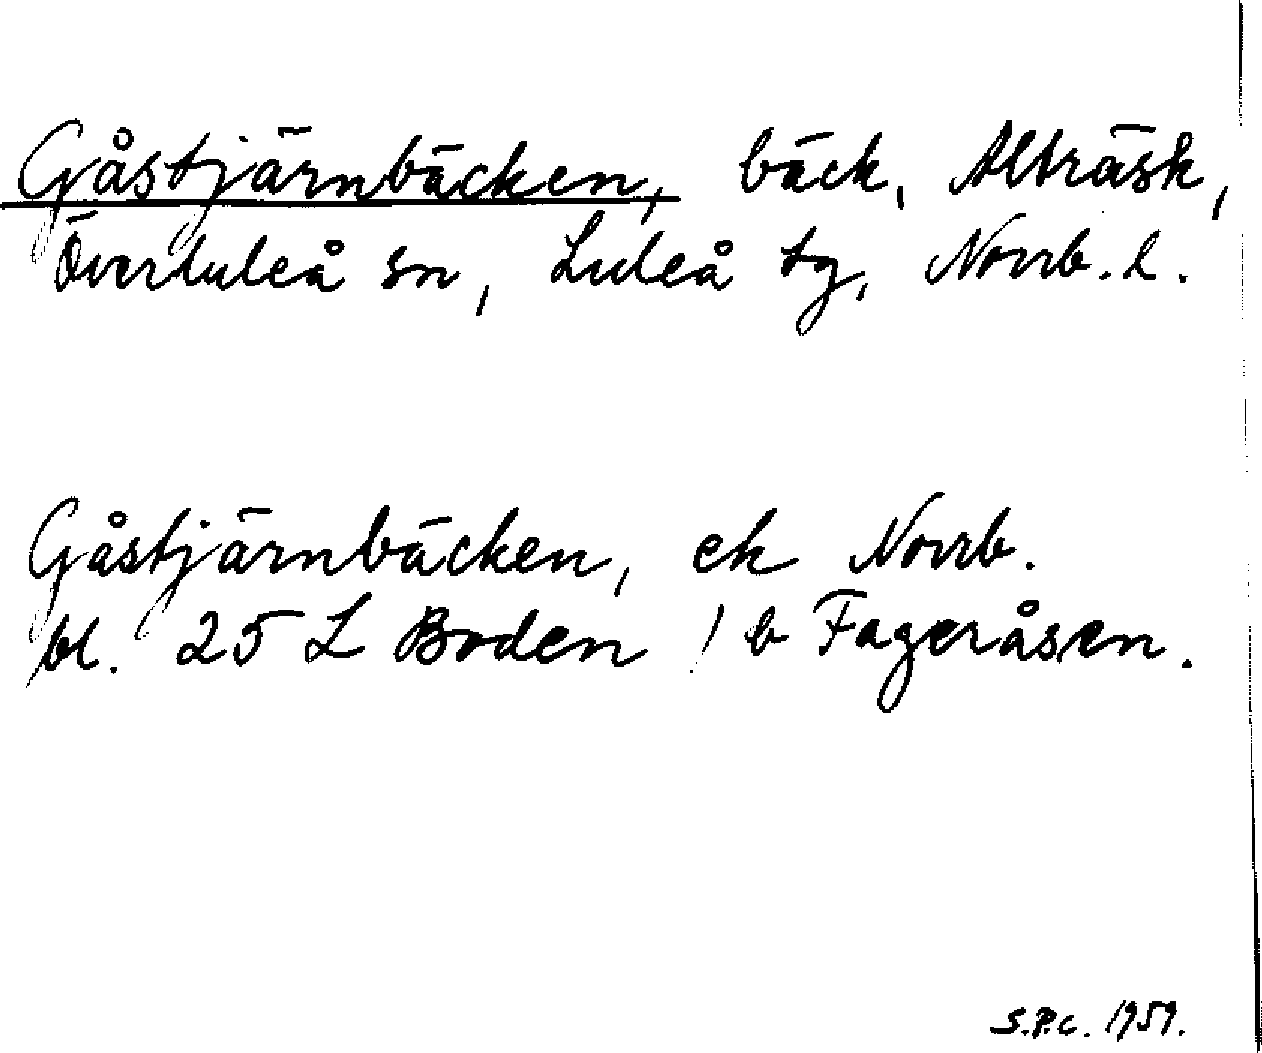 Gåstjärnbäcken, bäck, Alträsk,
Överluleå sn, Luleå tg, Norrb. l.
Gåstjärnbäcken, ek Norrb.
bl. 25 L Boden / b Fageråsen.
S.P.C. 1959.